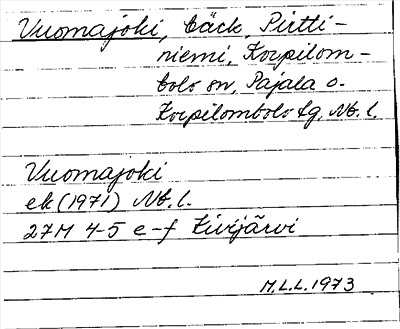 Vuomajoki, bäck, Pirtti-
niemi, Korpilom-
bolo sn, Pajala o.
Korpilombolo tg, Nb. l.
Vuomajoki
ek (1971) Nb. l.
27M 4-5 e-f Kivijärvi
M.L.L. 1973